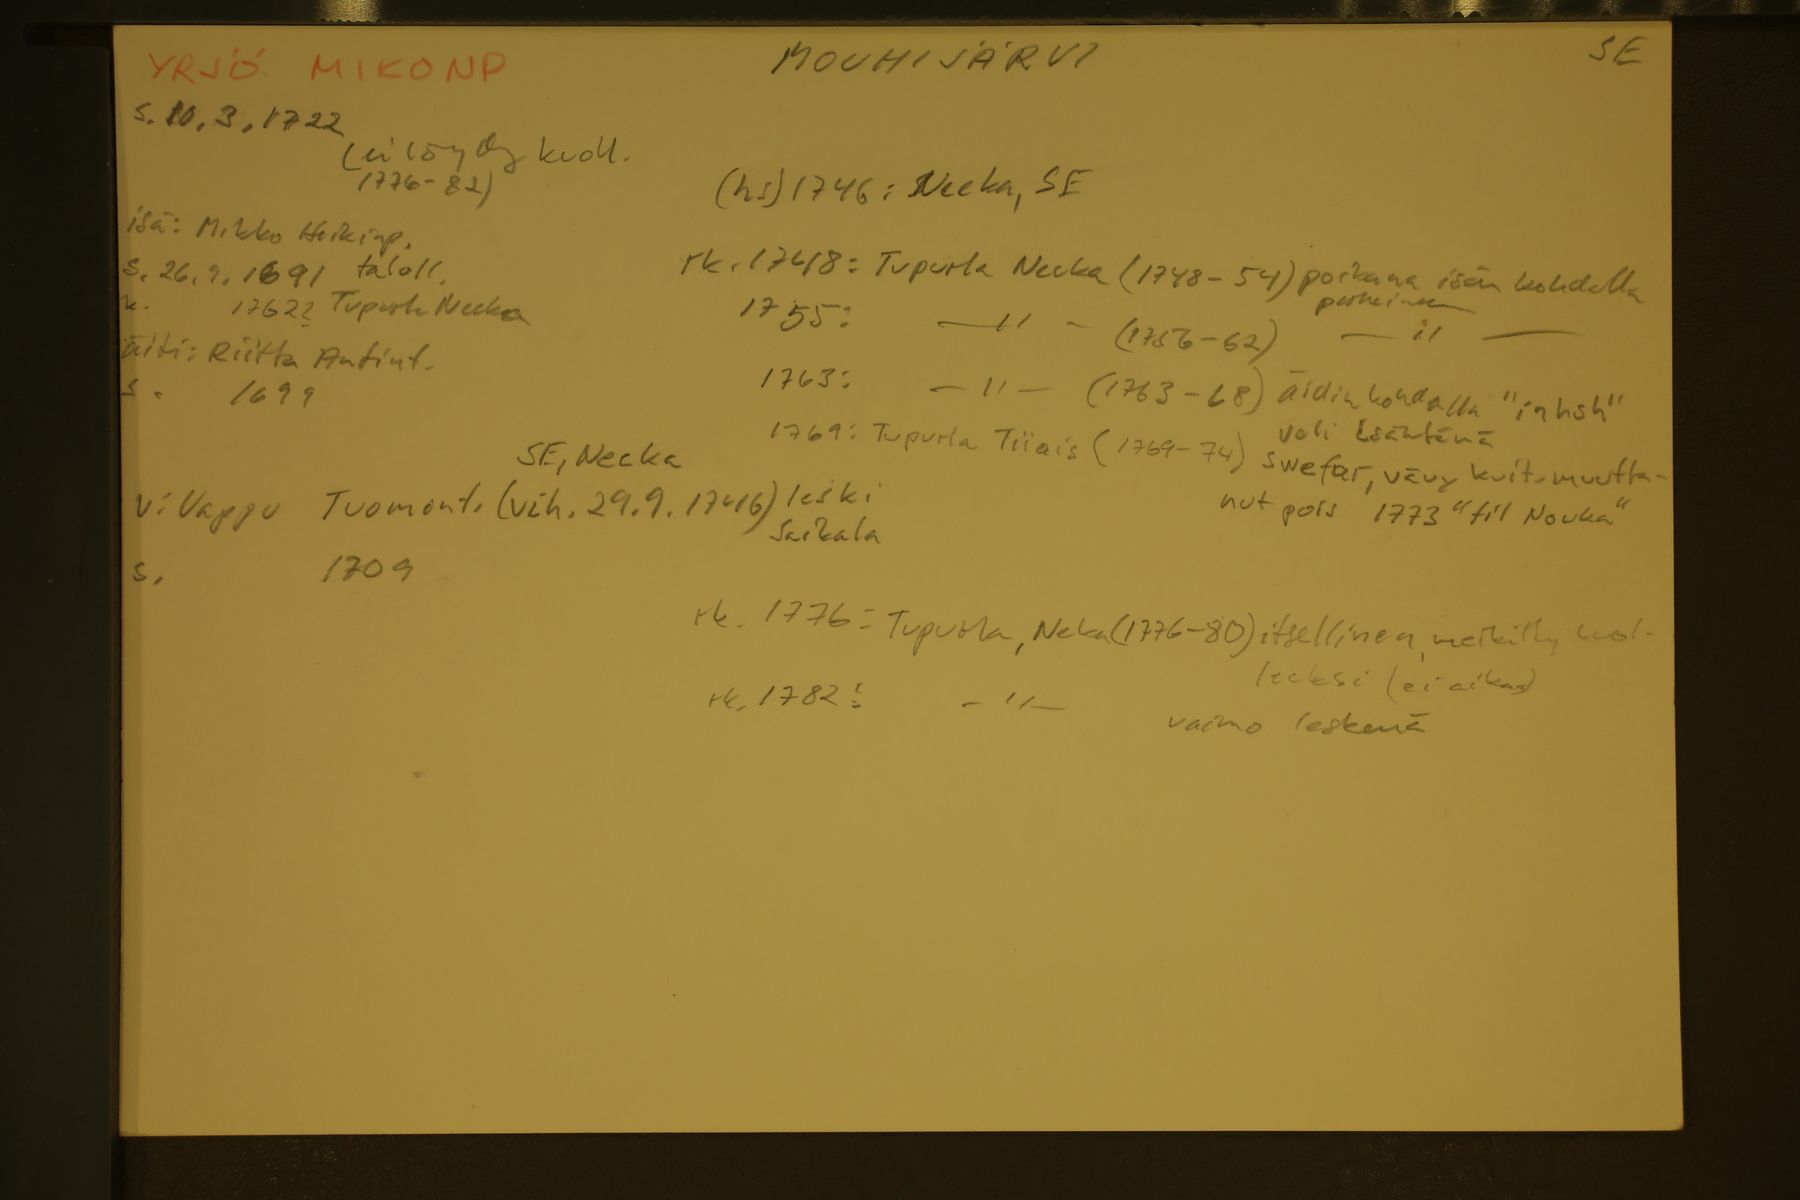 YRJÖ MIKONP MOUHIJÄRVI SE
s. 10.3.1722
(ei löydy kuoll.
1776-82)
(hs) 1746: Necka, SE
isä: Mikko Heikinp.
s. 26.9.1691 taloll.
k. 1762? Tupurla Necka
äiti: Riitta Antint.
s. 1699
rk. 1748: Tupurla Necka (1748-54) poikana isän kohdalla
perheineen
1755: —"— (1756-62) —"—
1763: —"— (1763-68) äidin kohdalla "inhsh"
veli isäntänä
1769: Tupurla Tiiais (1769-74) swefar, vävy kuit. muutta-
nut pois 1773 "til Nouka"
SE, Necka
v: Vappu Tuomont. (vih. 29.9.1746) leski
Saikala
s. 1709
rk. 1776: Tupurla, Neka (1776-80) itsellinen, merkitty kuol-
leeksi (ei aikaa)
rk. 1782: —"—
vaimo leskenä